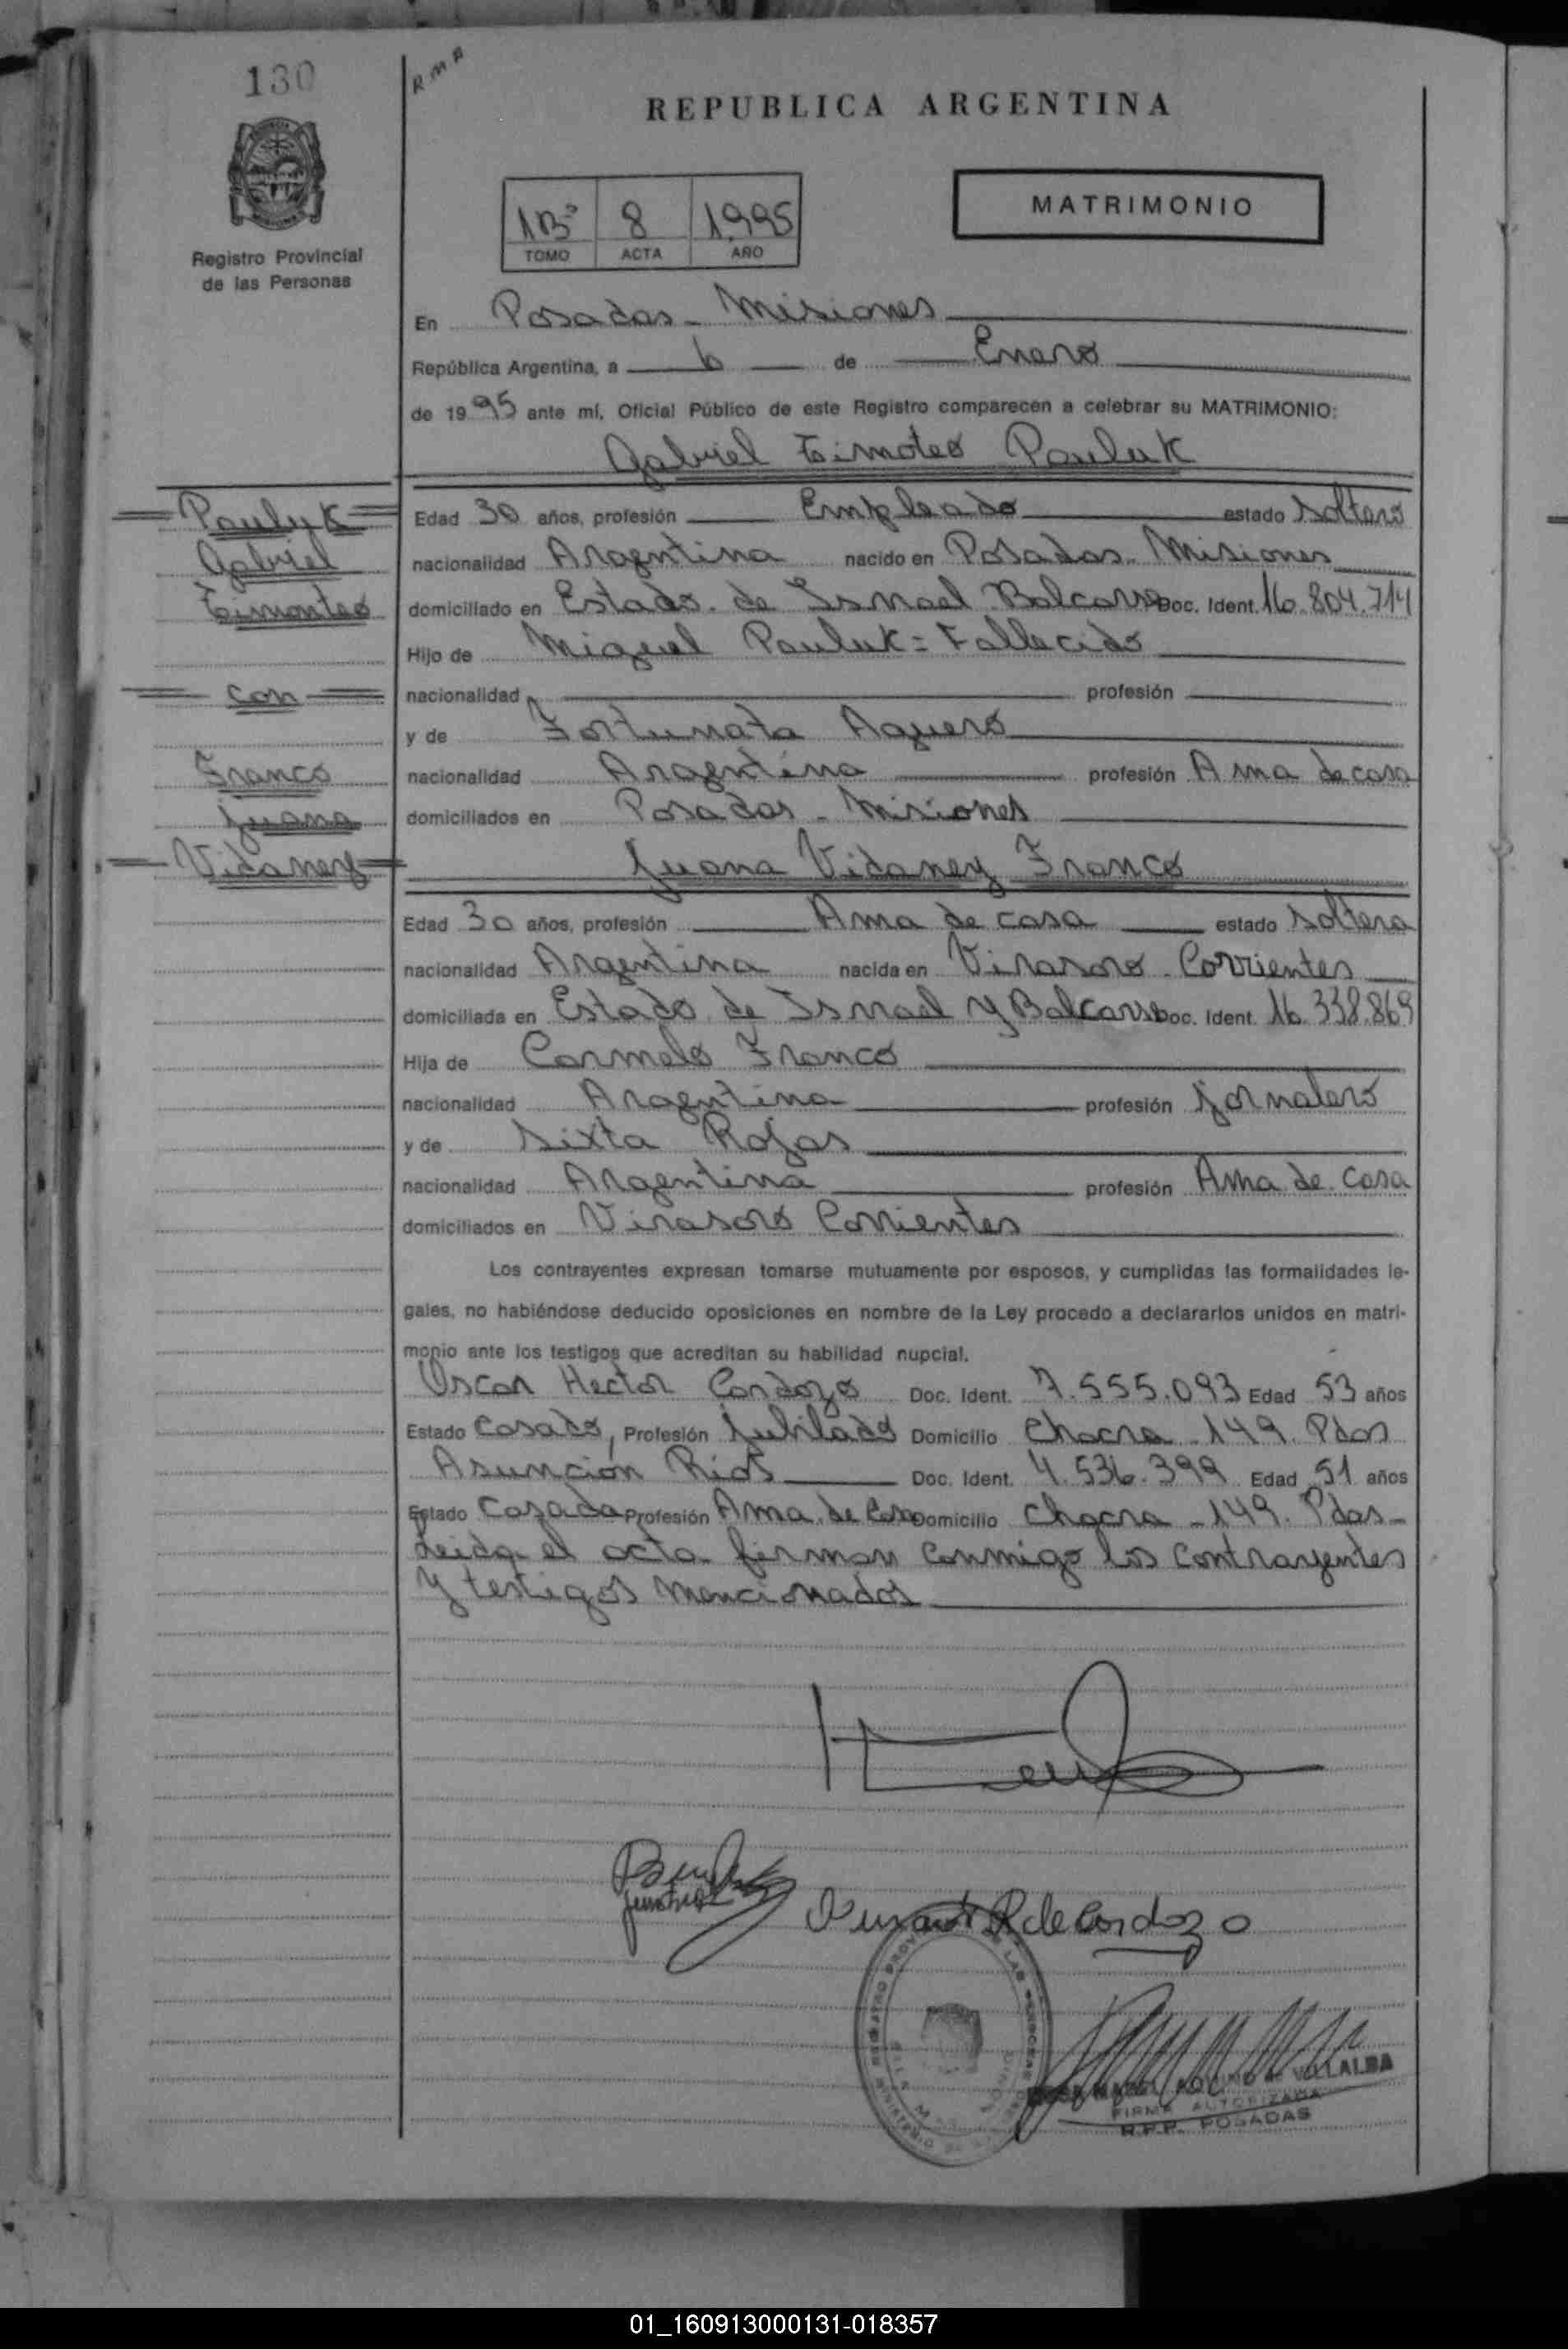 130
R M A
REPUBLICA ARGENTINA
1B³ 8 1.995
TOMO ACTA AÑO
MATRIMONIO
Registro Provincial
de las Personas
En Posadas - Misiones
República Argentina, a 6 de Enero
de 1995 ante mí, Oficial Público de este Registro comparecen a celebrar su MATRIMONIO:
Gabriel Timoteo Pauluk
Pauluk
Gabriel
Timonteo
con
Franco
Juana
Vidaney
Edad 30 años, profesión Empleado estado soltero
nacionalidad Argentina nacido en Posadas - Misiones
domiciliado en Estado de Ismael Balcarse Doc. Ident. 16.804.714
Hijo de Miguel Pauluk = Fallecido
nacionalidad profesión
y de Fortunata Aguero
nacionalidad Argentina profesión Ama de casa
domiciliados en Posadas - Misiones
Juana Vidaney Franco
Edad 30 años, profesión Ama de casa estado soltera
nacionalidad Argentina nacida en Virasoro - Corrientes
domiciliada en Estado de Ismael y Balcarse Doc. Ident. 16.338.869
Hija de Carmelo Franco
nacionalidad Argentina profesión jornalero
y de Sixta Rojas
nacionalidad Argentina profesión Ama de casa
domiciliados en Virasoro Corrientes
Los contrayentes expresan tomarse mutuamente por esposos, y cumplidas las formalidades le-
gales, no habiéndose deducido oposiciones en nombre de la Ley procedo a declararlos unidos en matri-
monio ante los testigos que acreditan su habilidad nupcial.
Oscar Hector Cardozo Doc. Ident. 7.555.093 Edad 53 años
Estado casado, Profesión jubilado Domicilio Chacra - 149. Pdas
Asunción Rios Doc. Ident. 4.536.399 Edad 51 años
Estado Casada Profesión Ama de Casa Domicilio chacra - 149. Pdas -
Leida el acta firman conmigo los contrayentes
y testigos mencionados
R de Cardozo
VILLALBA
FIRMA AUTORIZADA
R.P.P. POSADAS
01_160913000131-018357